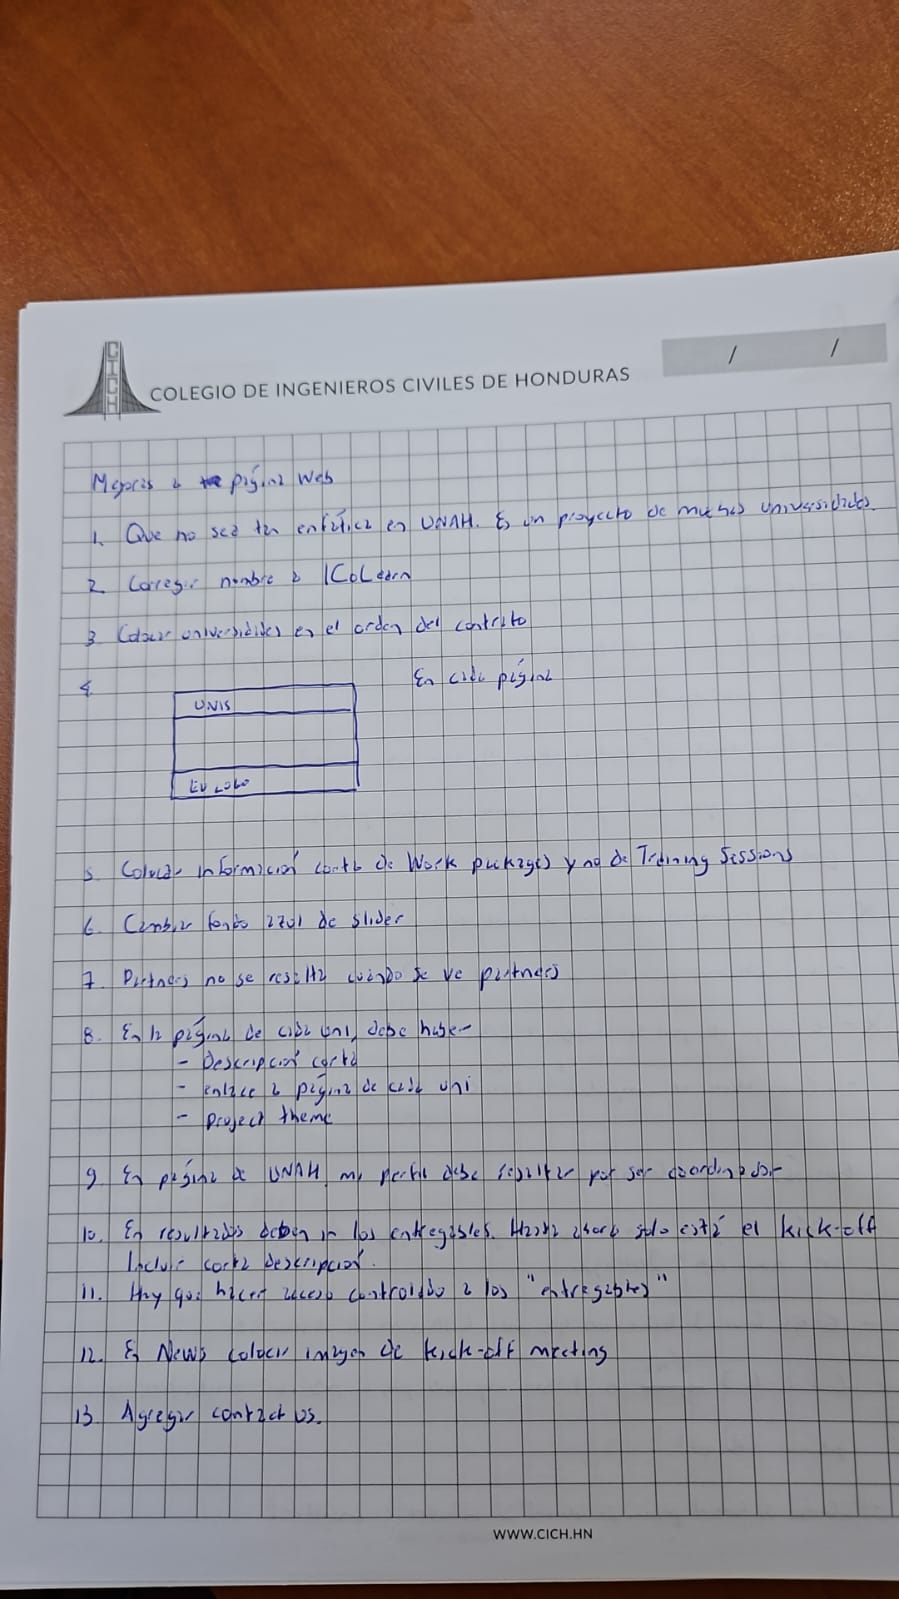 CICH
COLEGIO DE INGENIEROS CIVILES DE HONDURAS
/ /
Mejoras a página Web
1. Que no sea tan enfática en UNAH. Es un proyecto de muchas universidades.
2. Corregir nombre a ICoLearn
3. Colocar universidades en el orden del contrato
4. En cada página
UNIS
EU LOGO
5. Colocar información corta de Work packages y no de Training Sessions
6. Cambiar fondo azul de slider
7. Partners no se resalta cuando se ve partners
8. En la página de cada uni, debe haber
- Descripción corta
- enlace a página de cada uni
- project theme
9. En página de UNAH, mi perfil debe resaltar por ser coordinador
10. En resultados deben ir los entregables. Hasta ahora solo está el kick-off
Incluir corta descripción.
11. Hay que hacer acceso controlado a los "entregables"
12. En News colocar imagen de kick-off meeting
13. Agregar contact us.
WWW.CICH.HN